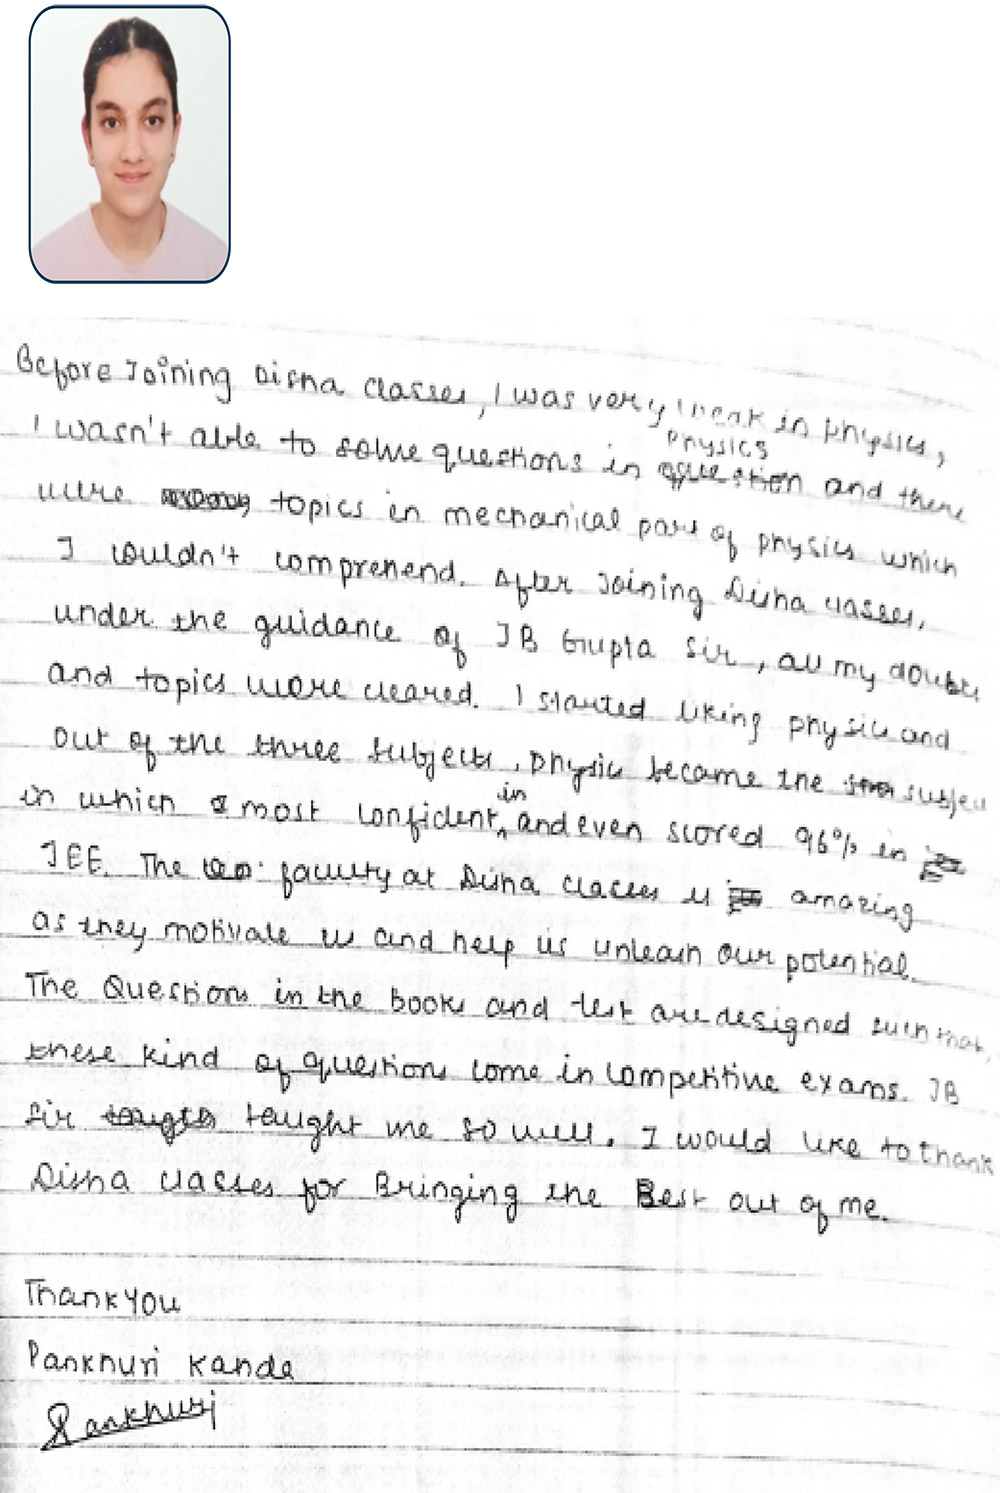 Before Joining Disha classes, I was very weak in physics,
I wasn't able to solve questions in physics and there
were topics in mechanical part of physics which
I couldn't comprehend. After Joining Disha classes,
under the guidance of JB Gupta Sir, all my doubts
and topics were cleared. I started liking physics and
out of the three subjects, physics became the subject
in which I most confident in and even scored 96% in
JEE. The faculty at Disha classes is amazing
as they motivate us and help us unleash our potential.
The Questions in the books and test are designed such that,
these kind of questions come in competitive exams. JB
sir taught me so well. I would like to thank
Disha classes for Bringing the Best out of me.
Thank You
Pankhuri Kande
Pankhuri